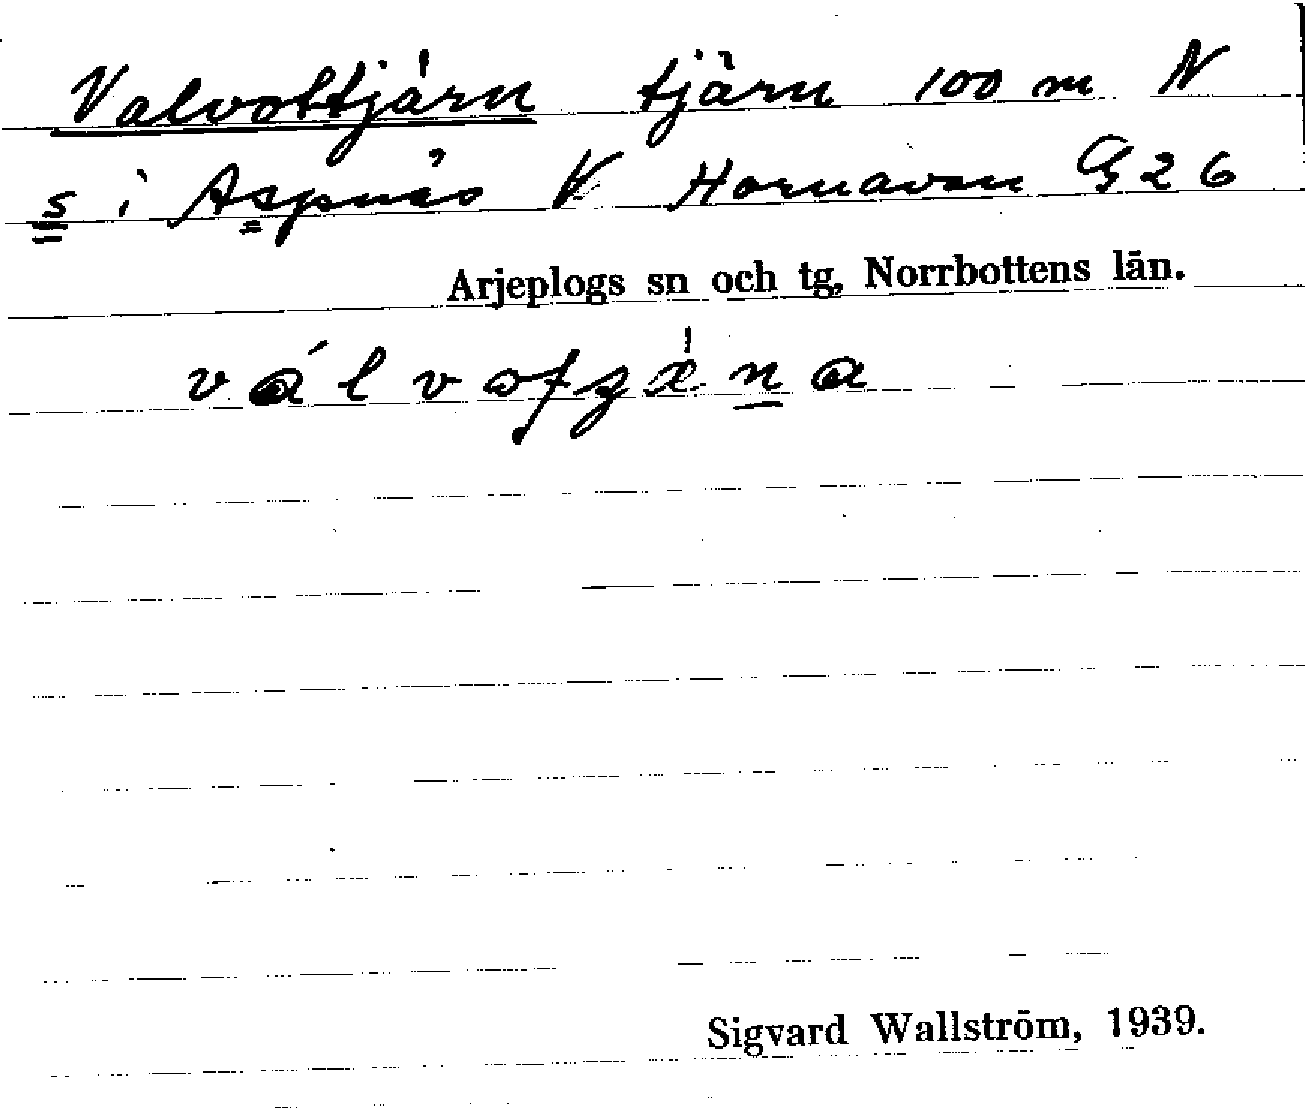 Valvottjärn tjärn 100 m N
s i Aspnäs V Hornavan G26
Arjeplogs sn och tg, Norrbottens län.
Sigvard Wallström, 1939.